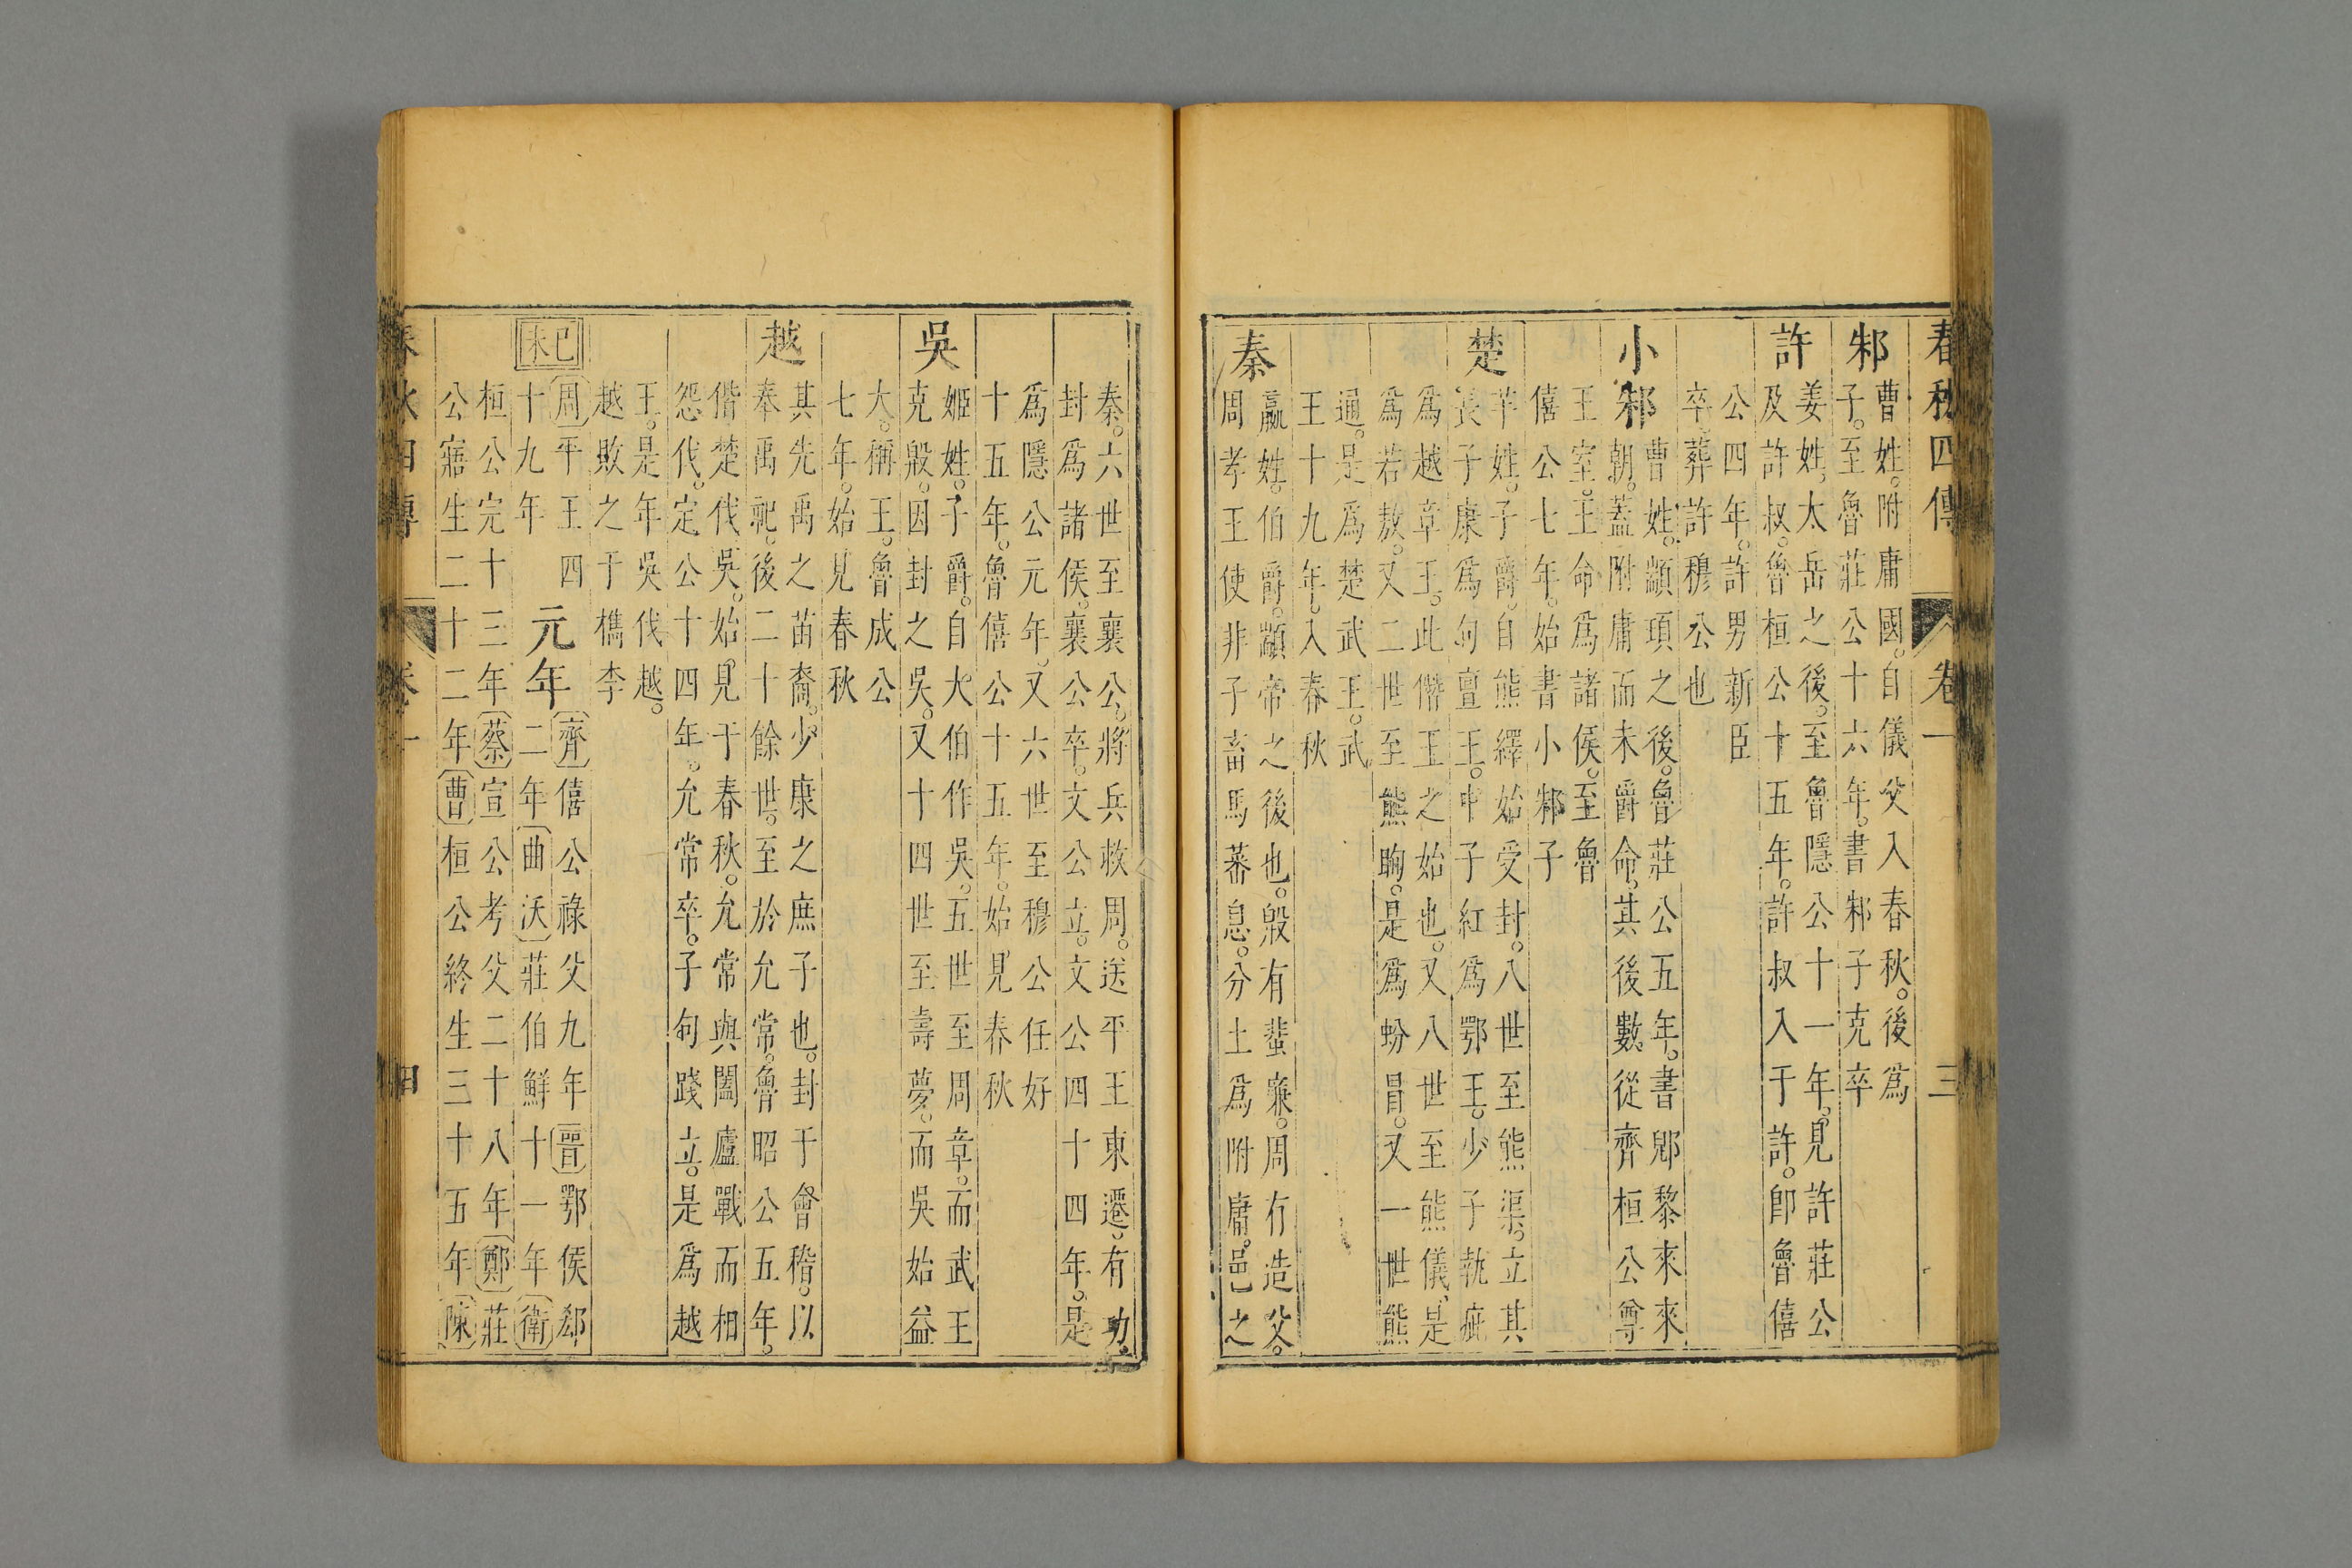 春秋四傳 卷一 三
邾
曹姓。附庸國。自儀父入春秋。後爲
子。至魯莊公十六年。書邾子克卒
許
姜姓。太岳之後。至魯隱公十一年。見許莊公
及許叔。魯桓公十五年。許叔入于許。卽魯僖
公四年。許男新臣
卒。葬許穆公也
小邾
曹姓。顓頊之後。魯莊公五年。書郳黎來來
朝。蓋附庸而未爵命。其後數從齊桓公尊
王室。王命爲諸侯。至魯
僖公七年。始書小邾子
楚
芈姓。子爵。自熊繹始受封。八世至熊渠。立其
長子康爲句亶王。中子紅爲鄂王。少子執疵
爲越章王。此僭王之始也。又八世至熊儀。是
爲若敖。又二世至熊眴。是爲蚡冒。又一世熊
通。是爲楚武王。武
王十九年。入春秋
秦
嬴姓。伯爵。顓帝之後也。殷有蜚廉。周有造父。
周孝王使非子畜馬蕃息。分土爲附庸。邑之
秦。六世至襄公。將兵救周。送平王東遷。有功。
封爲諸侯。襄公卒。文公立。文公四十四年。是
爲隱公元年。又六世至穆公任好
十五年。魯僖公十五年。始見春秋
吳
姬姓。子爵。自大伯作吳。五世至周章。而武王
克殷。因封之吳。又十四世至壽夢。而吳始益
大。稱王。魯成公
七年。始見春秋
越
其先禹之苗裔。少康之庶子也。封于會稽。以
奉禹祀。後二十餘世。至於允常。魯昭公五年。
偕楚伐吳。始見于春秋。允常與闔廬戰而相
怨伐。定公十四年。允常卒。子句踐立。是爲越
王。是年吳伐越。
越敗之于檇李
己未
周平王四
十九年
元年
齊僖公祿父九年晉鄂侯郄
二年曲沃莊伯鮮十一年衛
桓公完十三年蔡宣公考父二十八年鄭莊
公寤生二十二年曹桓公終生三十五年陳
春秋四傳 卷一 四